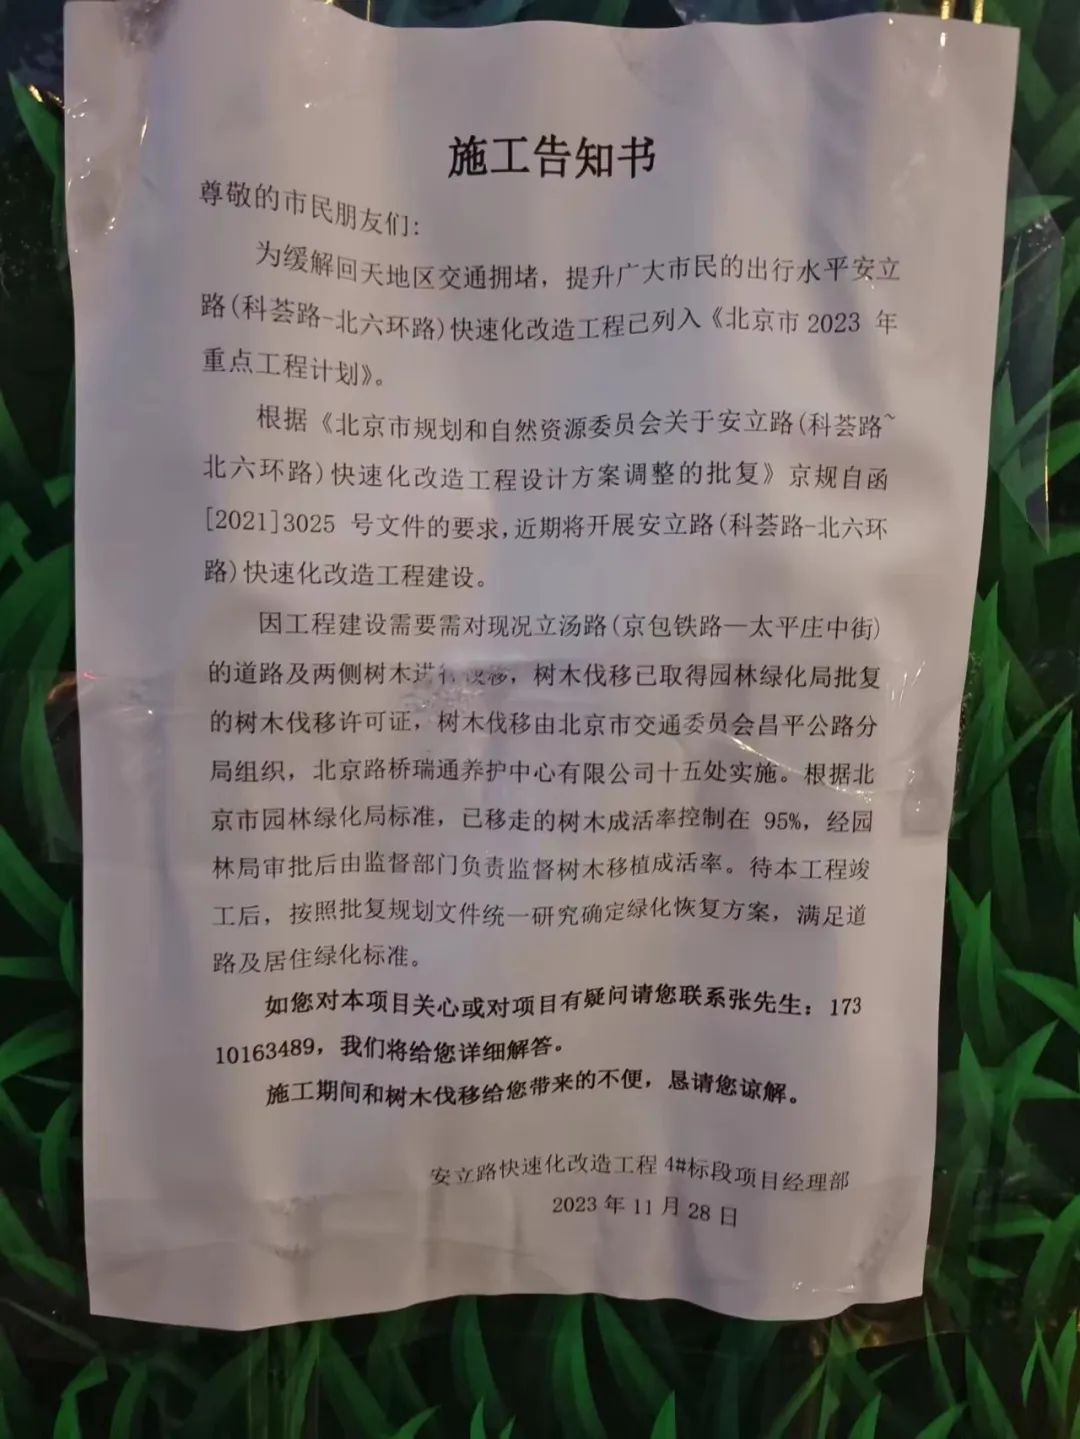 施工告知书
尊敬的市民朋友们：
为缓解回天地区交通拥堵，提升广大市民的出行水平安立
路(科荟路-北六环路)快速化改造工程已列入《北京市 2023 年
重点工程计划》。
根据《北京市规划和自然资源委员会关于安立路(科荟路~
北六环路)快速化改造工程设计方案调整的批复》京规自函
[2021]3025 号文件的要求,近期将开展安立路(科荟路-北六环
路)快速化改造工程建设。
因工程建设需要需对现况立汤路(京包铁路—太平庄中街)
的道路及两侧树木进行伐移，树木伐移已取得园林绿化局批复
的树木伐移许可证，树木伐移由北京市交通委员会昌平公路分
局组织，北京路桥瑞通养护中心有限公司十五处实施。根据北
京市园林绿化局标准，已移走的树木成活率控制在 95%，经园
林局审批后由监督部门负责监督树木移植成活率。待本工程竣
工后，按照批复规划文件统一研究确定绿化恢复方案，满足道
路及居住绿化标准。
如您对本项目关心或对项目有疑问请您联系张先生：173
10163489，我们将给您详细解答。
施工期间和树木伐移给您带来的不便，恳请您谅解。
安立路快速化改造工程 4#标段项目经理部
2023 年 11 月 28 日